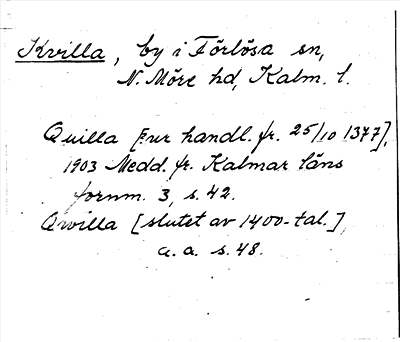 Kvilla, by i Förlösa sn,
N. Möre hd, Kalm. l.
Quilla [ur handl. fr. 25/10 1377],
1903 Medd. fr. Kalmar läns
fornm. 3, s. 42.
Qwilla [slutet av 1400-tal.],
a. a. s. 48.